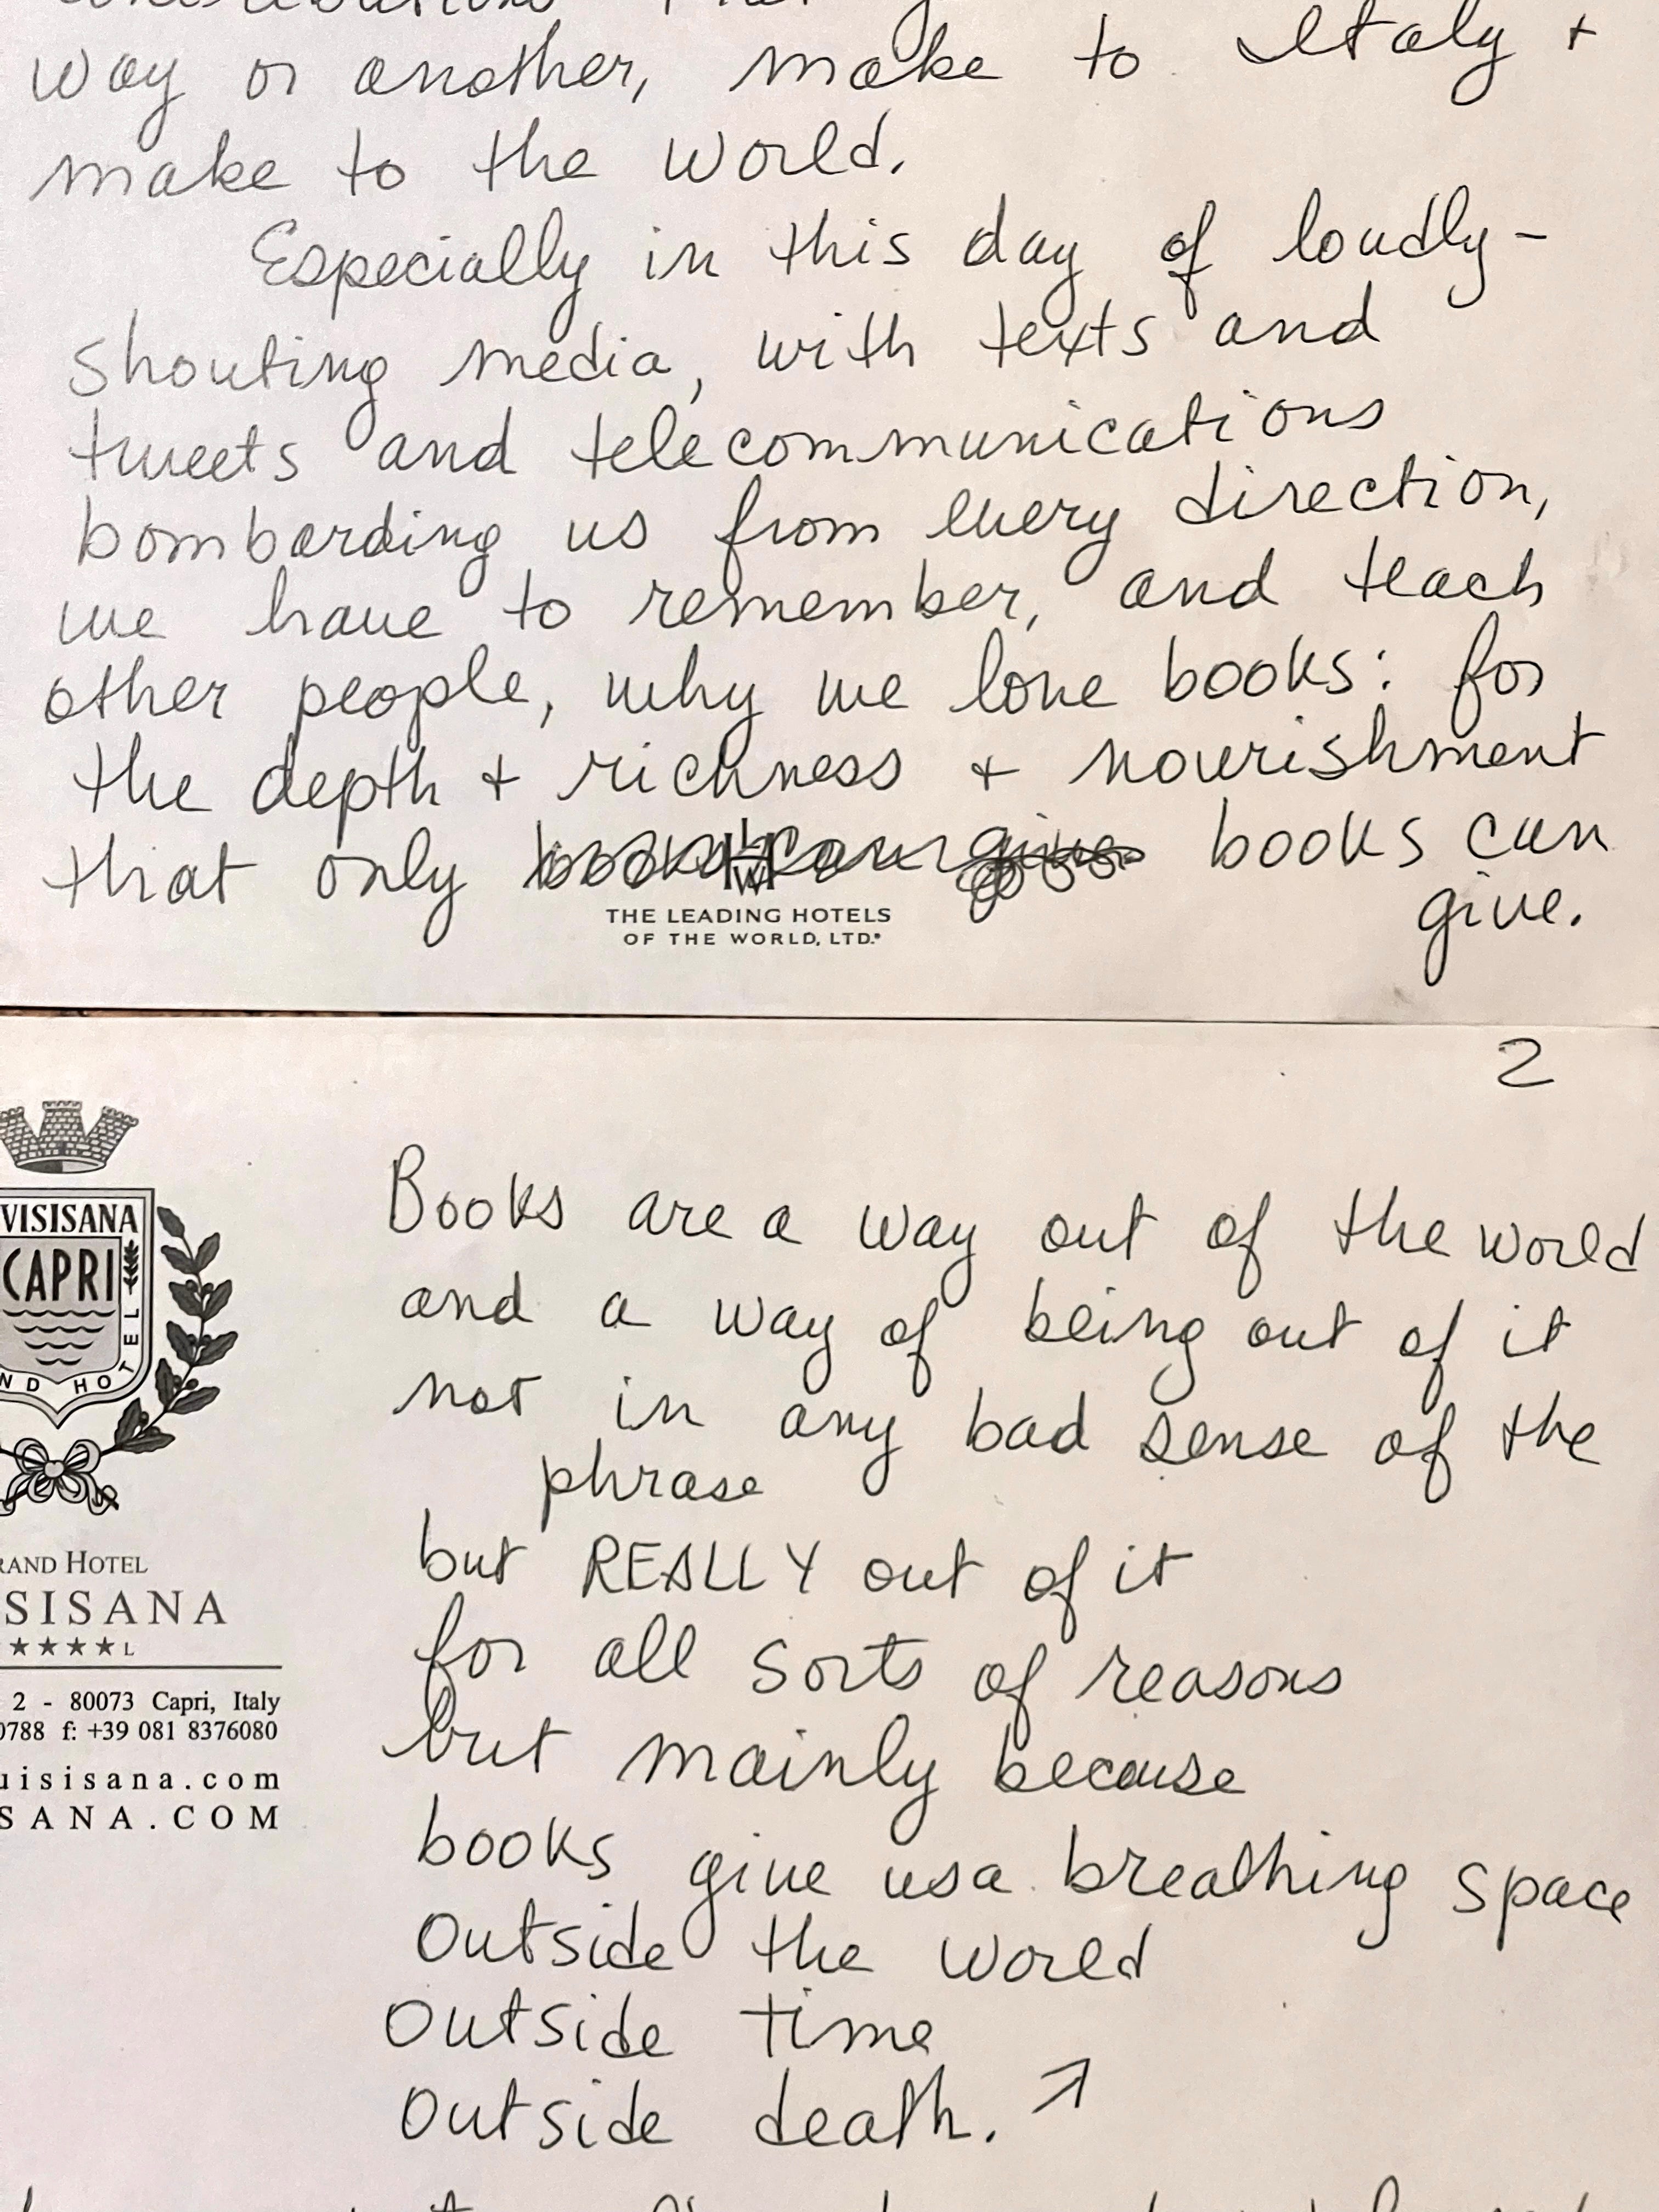 way or another, make to Italy +
make to the world.
Especially in this day of loudly-
shouting media, with texts and
tweets and telecommunications
bombarding us from every direction,
we have to remember, and teach
other people, why we love books: for
the depth + richness + nourishment
that only books can give books can
give.
THE LEADING HOTELS
OF THE WORLD, LTD.®
2
VISISANA
CAPRI
ND HOTEL
Books are a way out of the world
and a way of being out of it
not in any bad sense of the
phrase
but REALLY out of it
for all sorts of reasons
but mainly because
books give us a breathing space
Outside the world
Outside time
Outside death. ↗
RAND HOTEL
SISANA
★★★★ L
2 - 80073 Capri, Italy
0788 f: +39 081 8376080
uisisana.com
SANA.COM